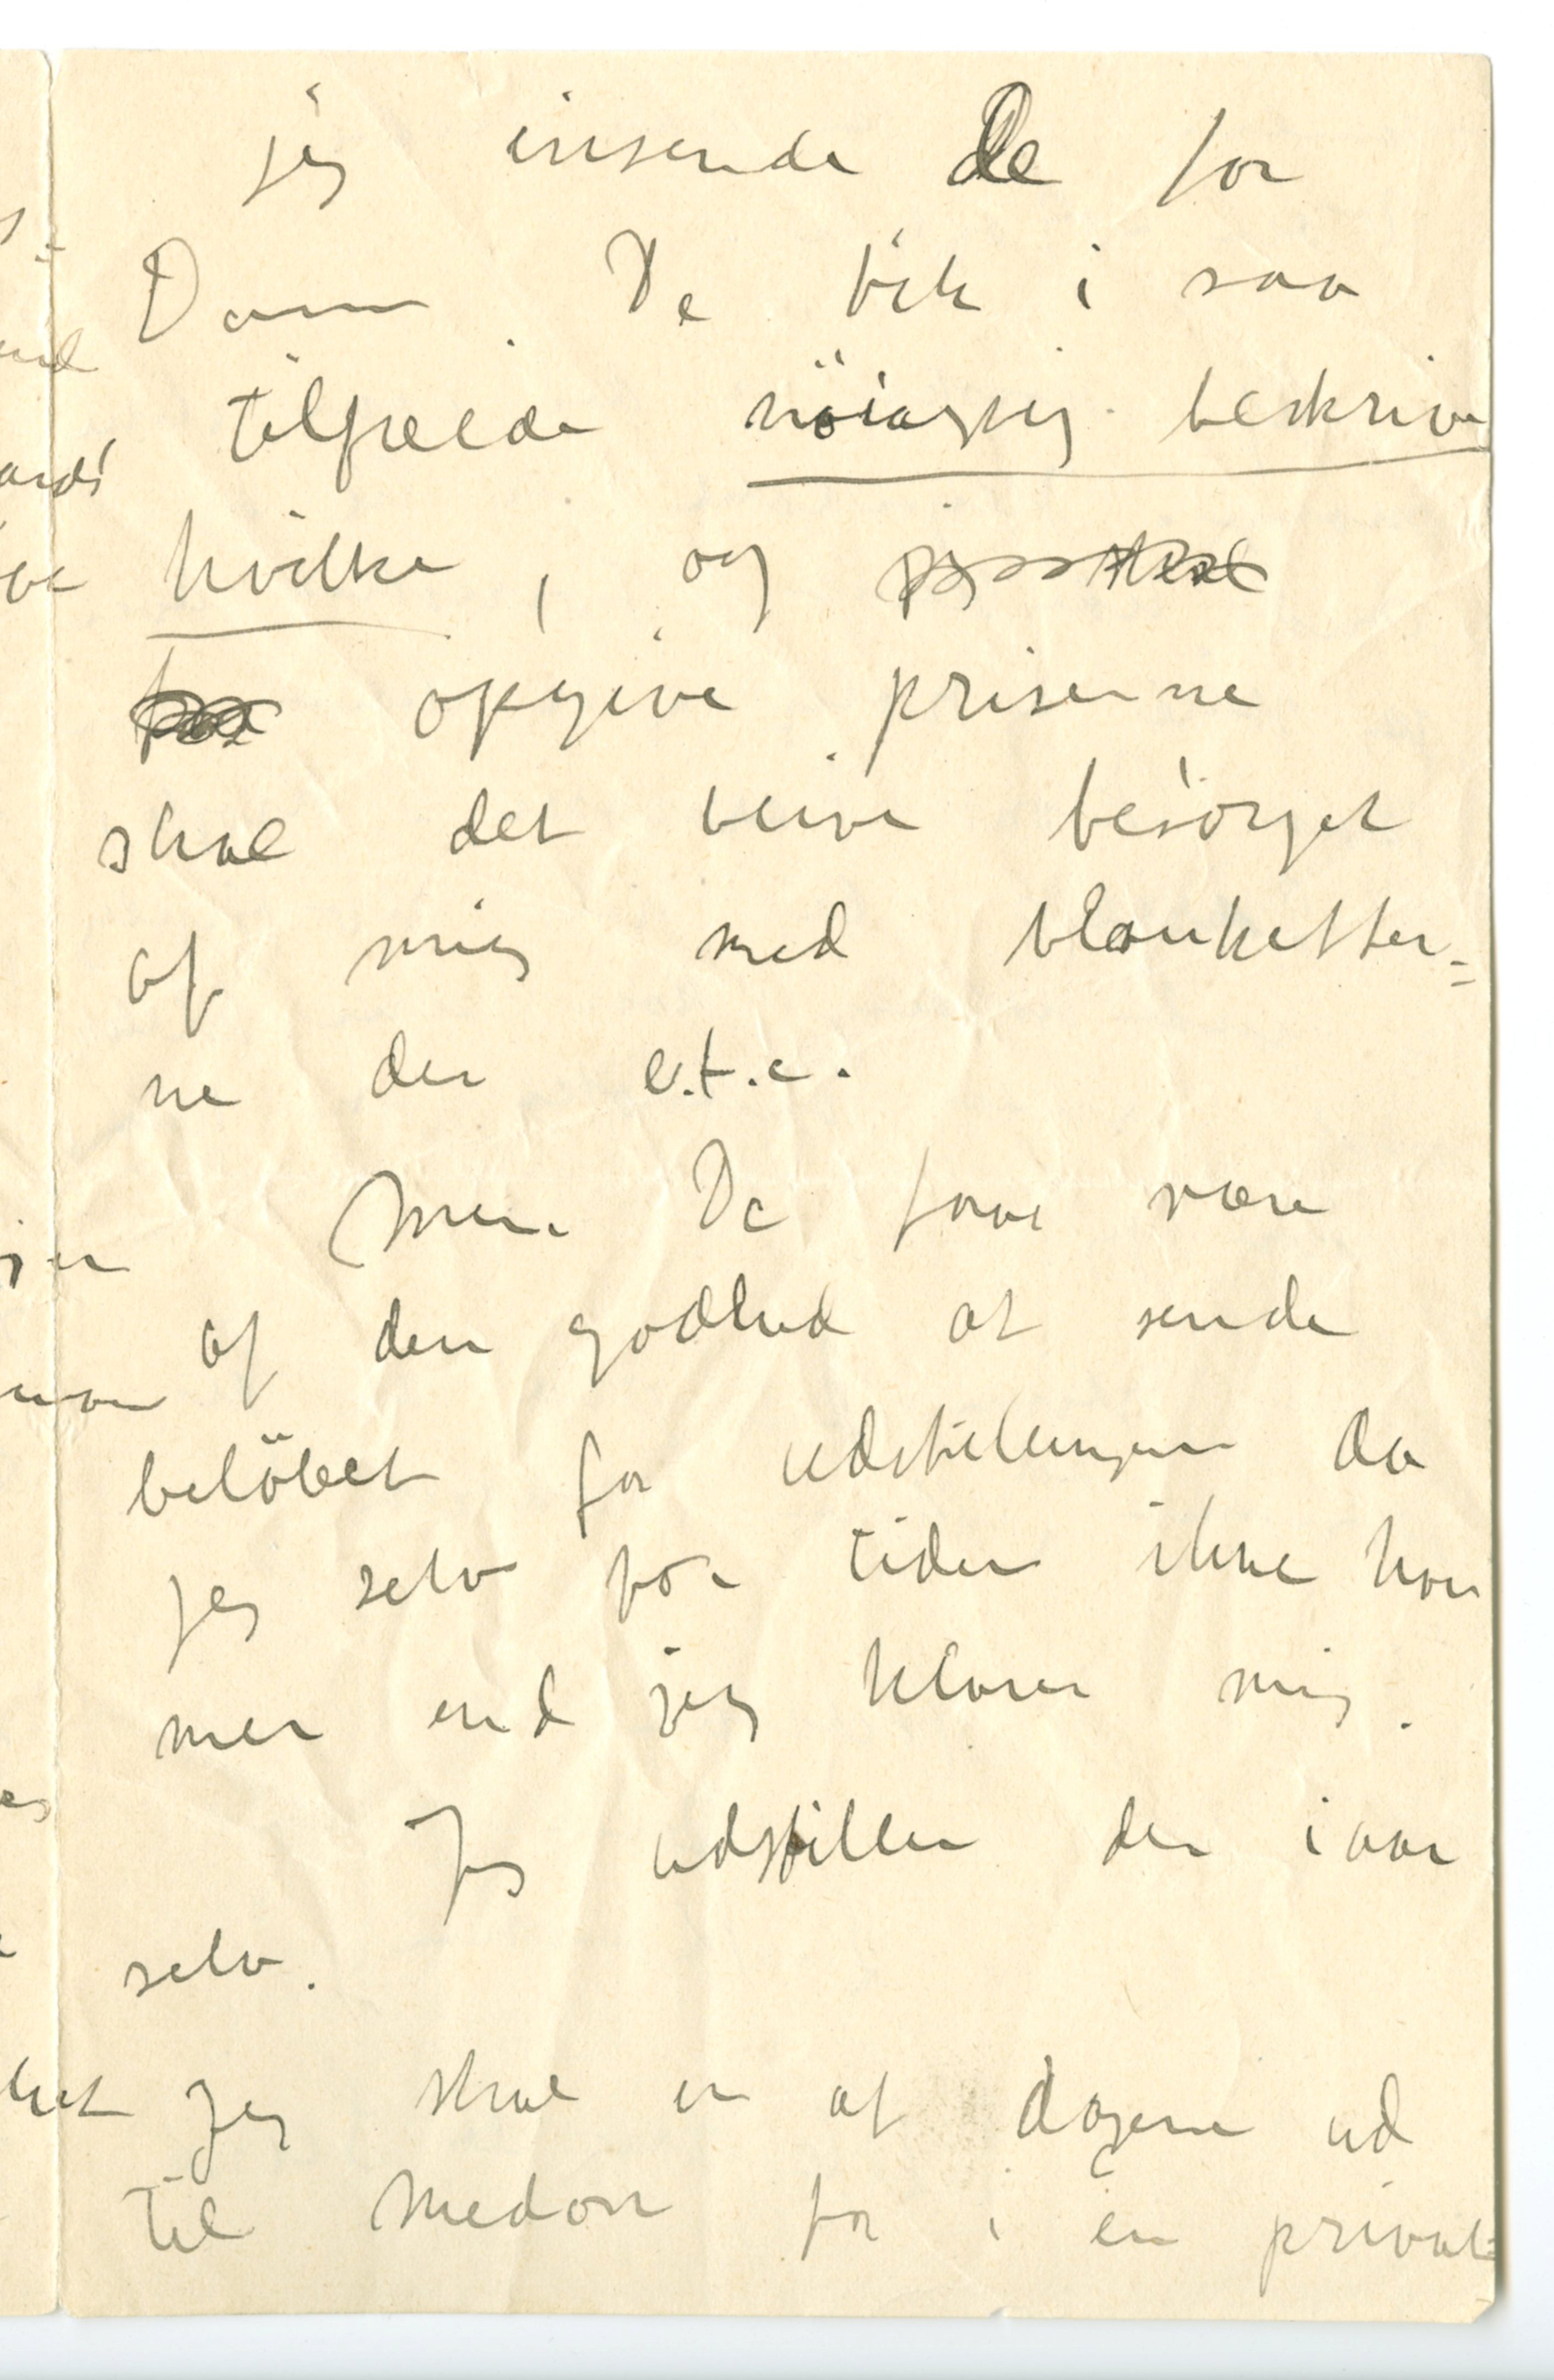 jeg insende de for
Dem De fik i saa
tilfælde nöiagtig beskrive
hvilke, og
opgive priserne
skal det blive besörget
af mig med blanketter=
ne der e.t.c.
Men De faar være
af den godhed at sende
belöbet for udstillingen da
jeg selv for tiden ikke har
mer end jeg klarer mig.
Jeg udstiller der iaar
selv.
Jeg skal en af dagene ud
til Medon for i en privat=